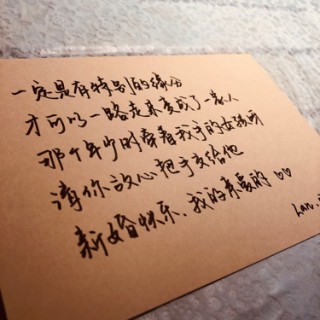 一定是有特别的缘份
才可以一路走来变成了一家人
那个年少时牵着我手的女孩
请你放心把手交给他
新婚快乐、我的亲爱的 ♡♡
Lan.